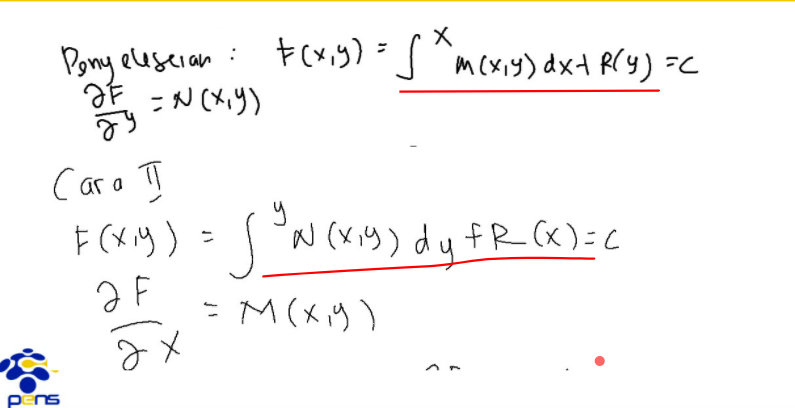 Penyelesaian : F(x,y) = ∫^x M(x,y) dx + R(y) = C
∂F/∂y = N(x,y)
Cara II
F(x,y) = ∫^y N(x,y) dy + R(x) = C
∂F/∂x = M(x,y)
pens